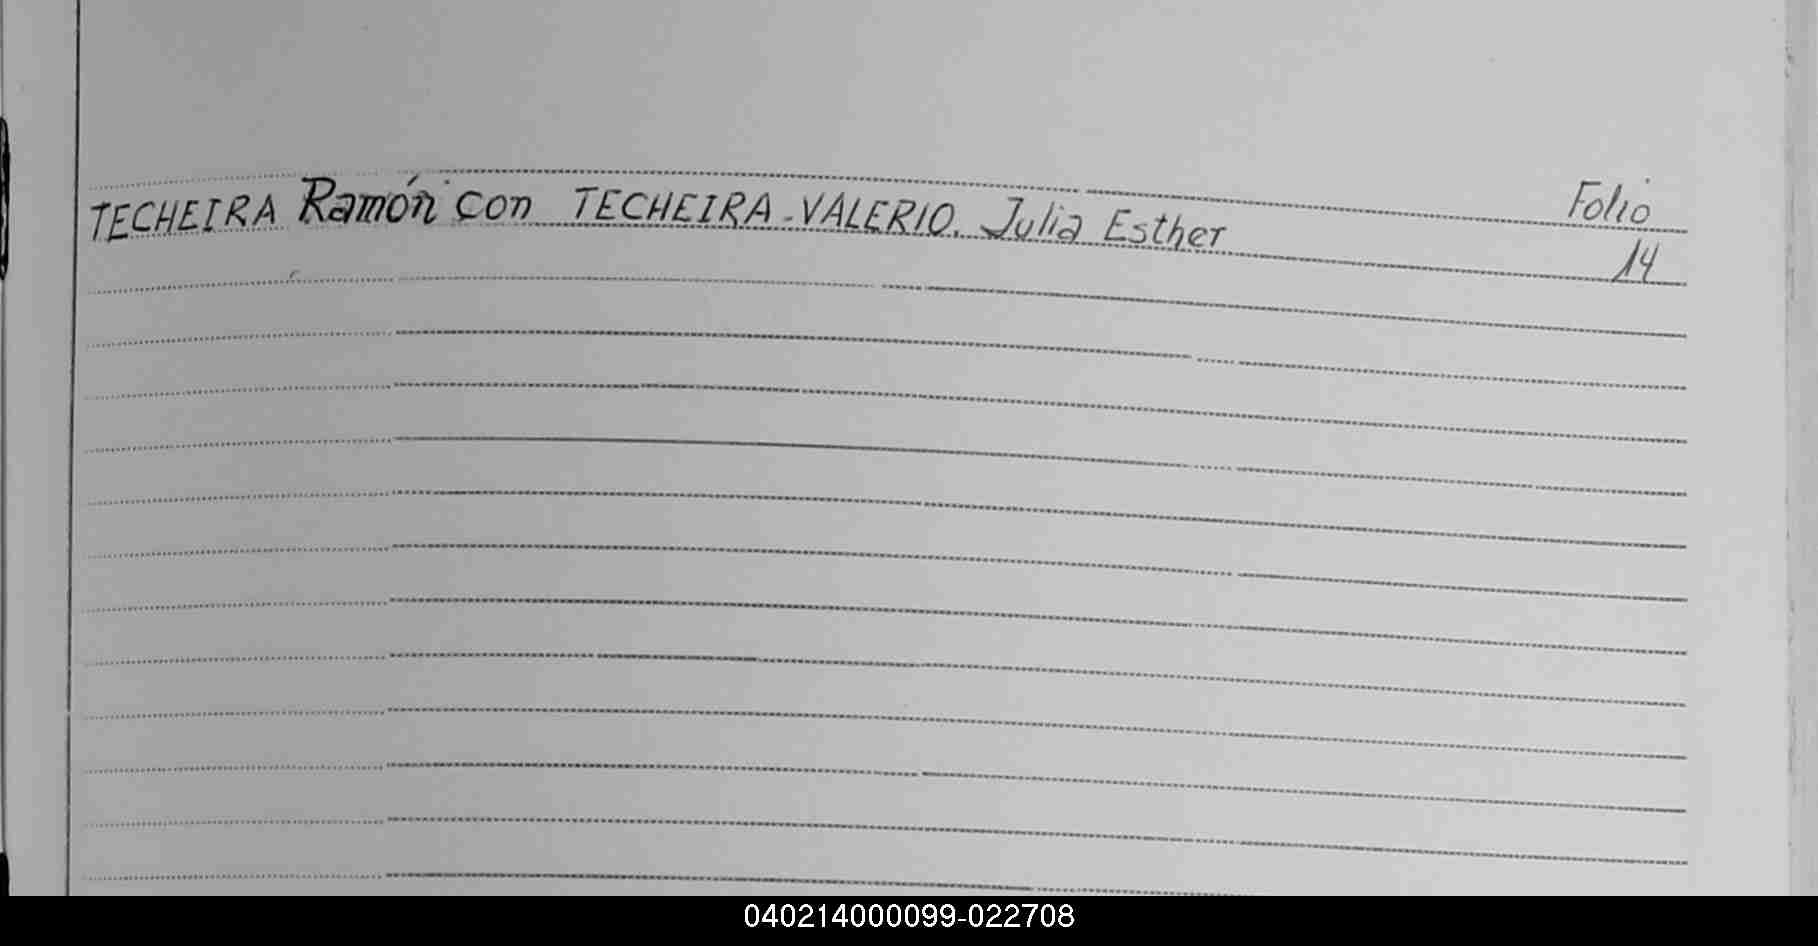 Folio
TECHEIRA Ramón con TECHEIRA-VALERIO. Julia Esther 14
040214000099-022708